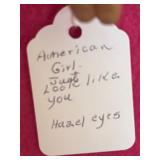 American
Girl
Just
Look like
you
Hazel eyes